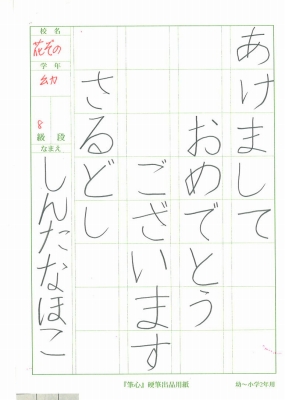 あけまして
おめでとう
ございます
さるどし
校名
花ぞの
学年
幼
8
級段
なまえ
しんたなほこ
『筆心』硬筆出品用紙
幼〜小学2年用